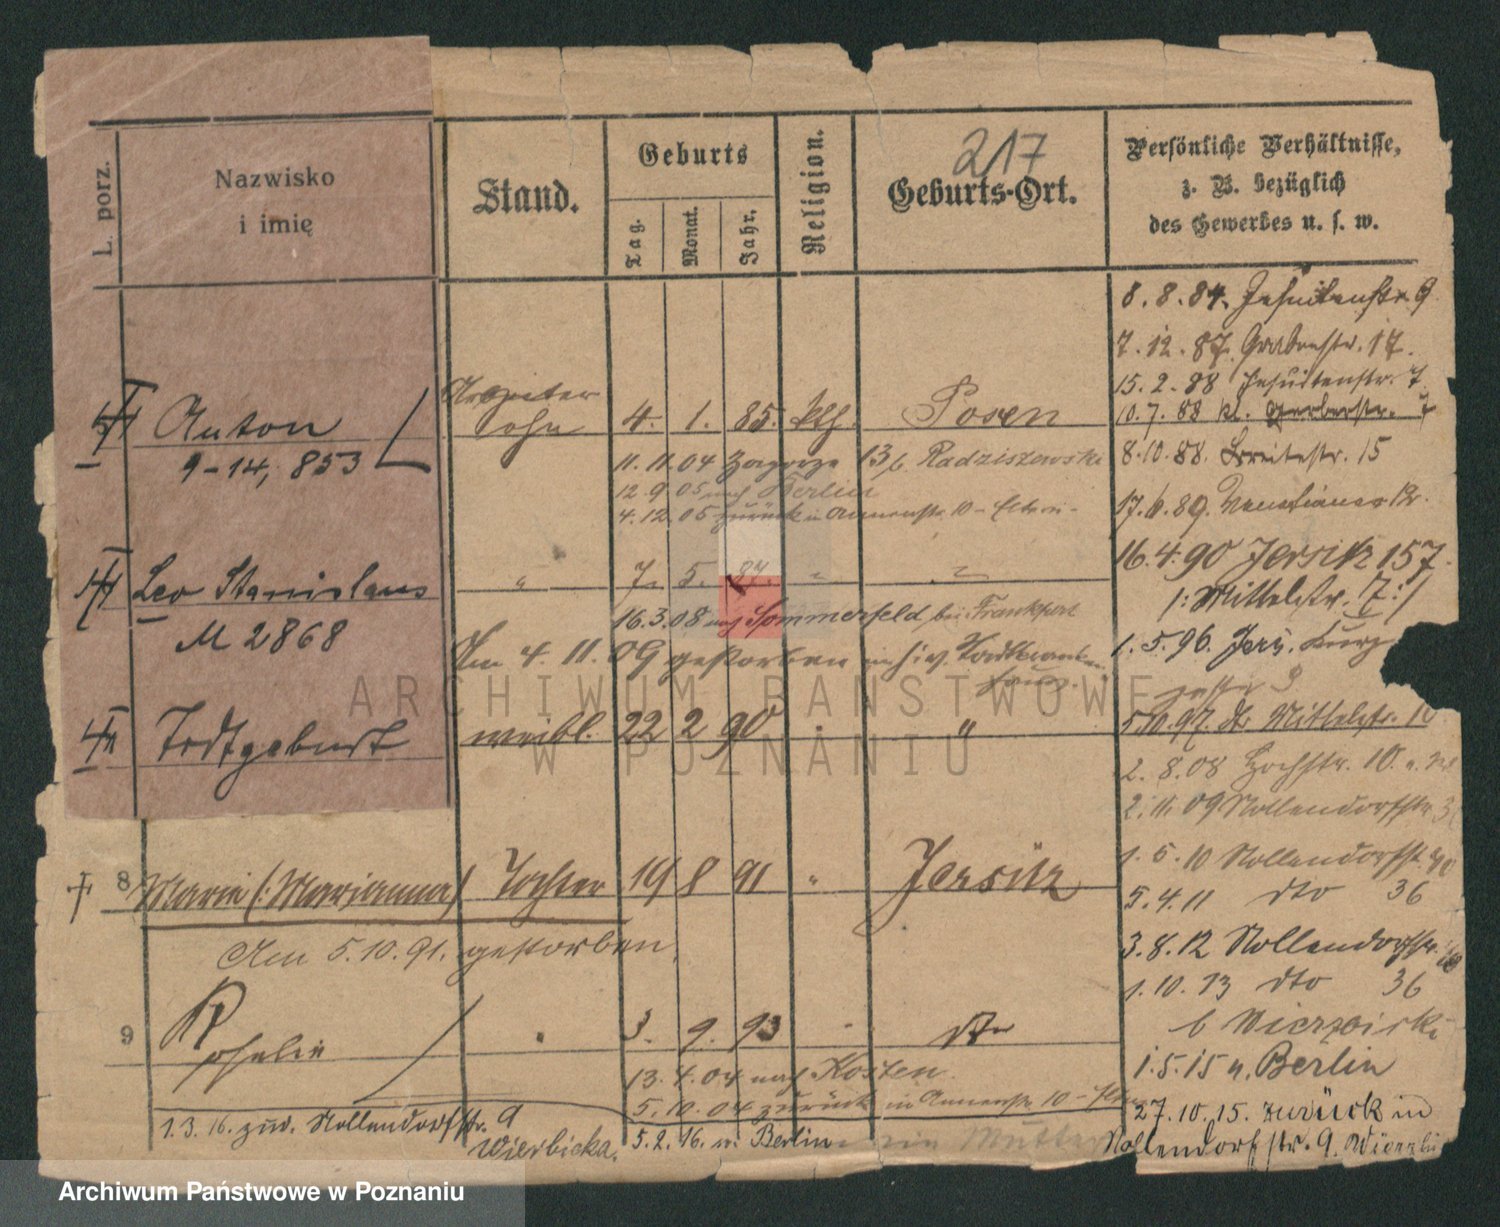 L. porz.
Nazwisko
i imię
Stand.
Geburts
Tag.
Monat.
Jahr.
Religion.
217
Geburts-Ort.
Persönliche Verhältnisse,
z. B. bezüglich
des Gewerbes u. s. w.
Anton
9-14, 853
Arbeiter
Sohn
4. 1. 85. kth. Posen
11.11.04 Zagorze 13 b. Radziszewski
12.9.05 nach Berlin
4.12.05 zurück in Annenstr. 10 - Eltern -
Leo Stanislaus
M 2868
" 7. 5. 87. " "
16.3.08 nach Sommerfeld bei Frankfurt
Am 4.11.09 gestorben im
Todtgeburt
weibl. 22 2 90 " "
8
Marie (:Marianna) Tochter 19 8 91 " Jersitz
Am 5.10.91. gestorben.
9
Ophelia " 3. 9. 93 " dto
13.4.04 nach Kosten.
5.10.04 zurück in Annenstr. 10 -
1.3.16. zur. Nollendorfstr. 9
Wierbicka.
5.2.16. n. Berlin
Mutter
8.8.84. Jesuitenstr. 9
7.12.87. Grabenstr. 17.
15.2.88 Jesuitenstr. 7.
10.7.88 kl. Gerberstr. 7
8.10.88. Breitestr. 15
17.6.89. Venetianerstr.
16.4.90 Jersitz 157.
/: Mittelstr. 7 :/
1.5.96. Jers.
5.10.97. dto Mittelstr. 10
2.8.08 Hochstr. 10.
2.11.09 Nollendorfstr. 3
1.5.10 Nollendorfstr. 40
5.4.11 dto 36
3.8.12 Nollendorfstr.
1.10.13 dto 36
b Wierzbicki
1.5.15 n. Berlin
27.10.15. zurück in
Nollendorfstr. 9.
ARCHIWUM PAŃSTWOWE
W POZNANIU
Archiwum Państwowe w Poznaniu